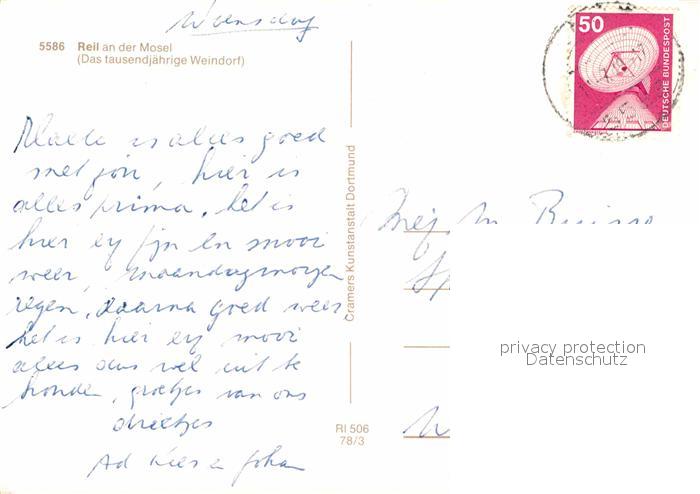 Woensdag
5586 Reil an der Mosel
(Das tausendjährige Weindorf)
is alles goed
met jou, hier is
alles prima, het is
hier erg fijn en mooi
weer, maandagmorgen
regen, daarna goed weer
het is hier erg mooi
alles dus wel uit te
houden, groetjes van ons
drietjes
Ad Kees en Johan
Cramers Kunstanstalt Dortmund
RI 506
78/3
50
DEUTSCHE BUNDESPOST
Mej. M
privacy protection
Datenschutz